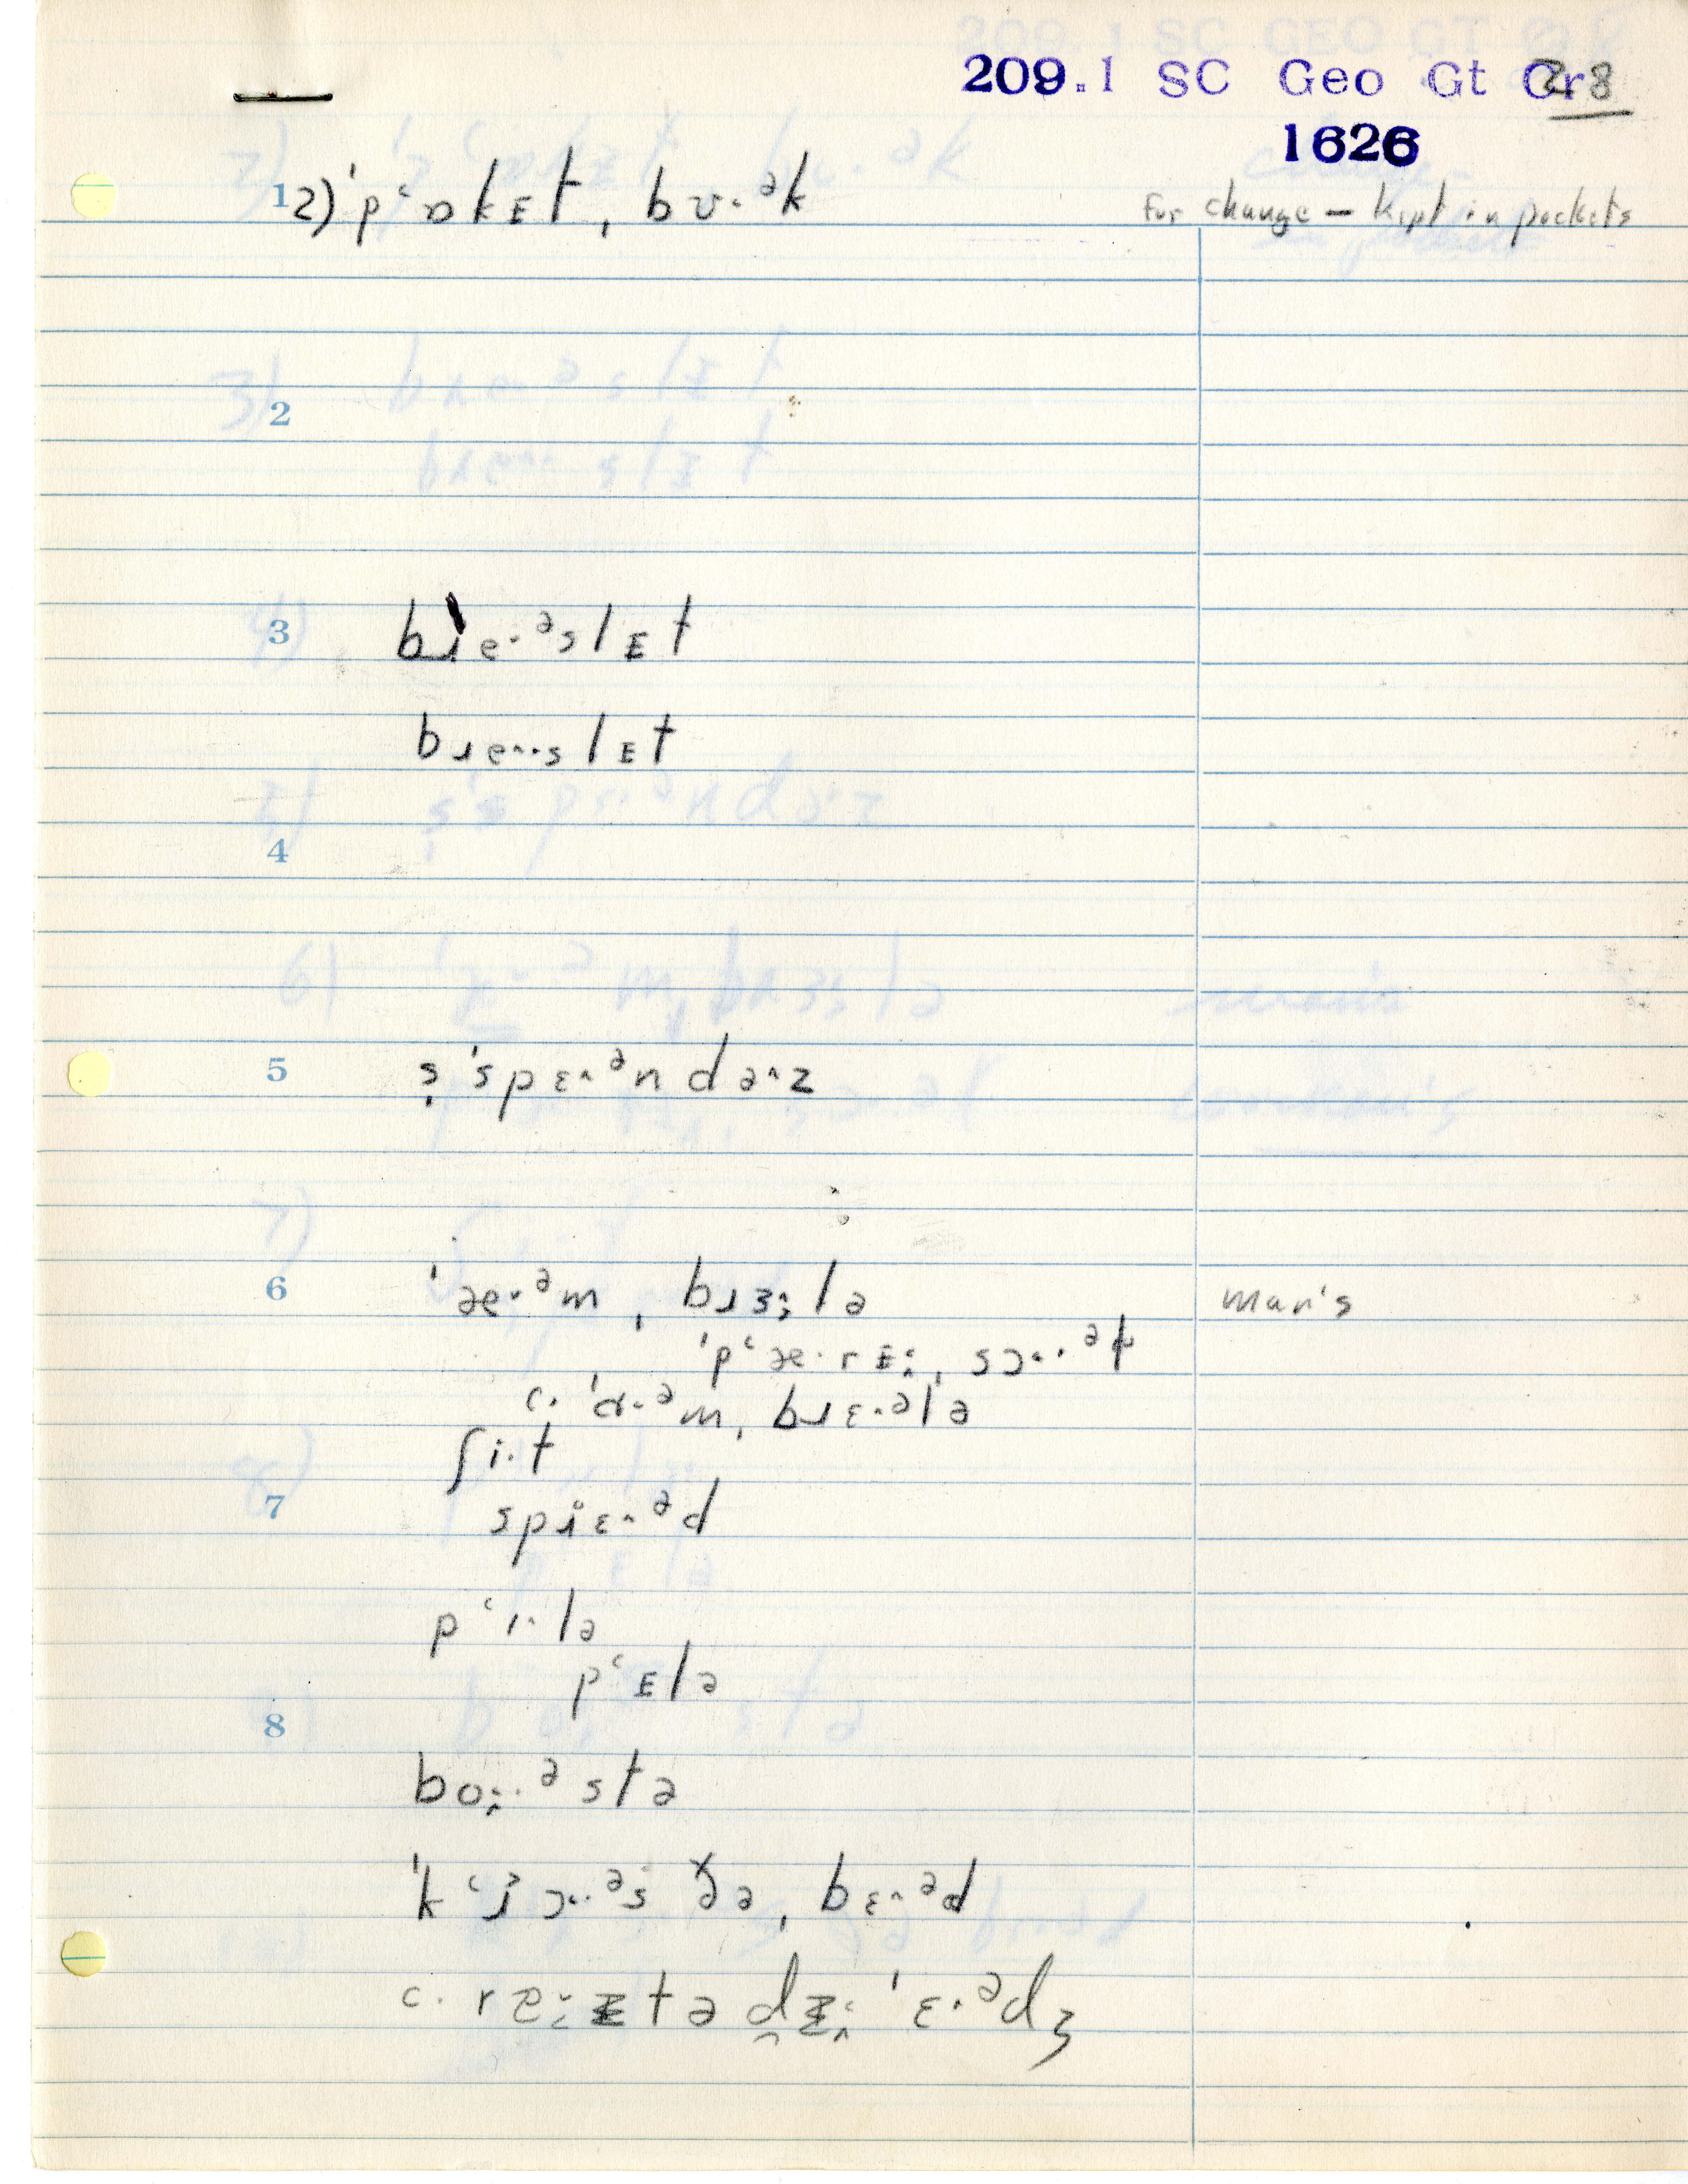 209.1 SC Geo Gt Cr 28
1626
1 2) ˈpʻɒkᴇt ˌbʊ·ᵊk
for change — kept in pockets
2
3 bɹe·ᵊslᴇt
bɹe^·slᴇt
4
5 s̩ˈspɛ^ᵊndə^z
6 ˈæ·ᵊm ˌbɹɜ:lə
man's
ˈpʻæ·rᴇ: ˌsɔ··ᵊt
c. ˈɒ·ᵊm ˌbɹɛ·ᵊlə
ʃi·t
7 spɹɛ^ᵊd
pʻɪ^·lə
pʻᴇlə
8
bo:·ᵊstə
ˈkʻɹɔ··ᵊs ðə ˌbɛ^ᵊd
c. rɐ:ᴇtə dᴇ: ˈɛ·ᵊdʒ